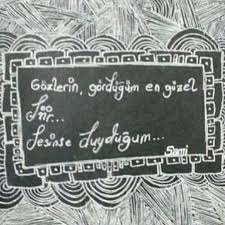 Gözlerin, gördüğüm en güzel
Şiir...
Sesinse duyduğum...